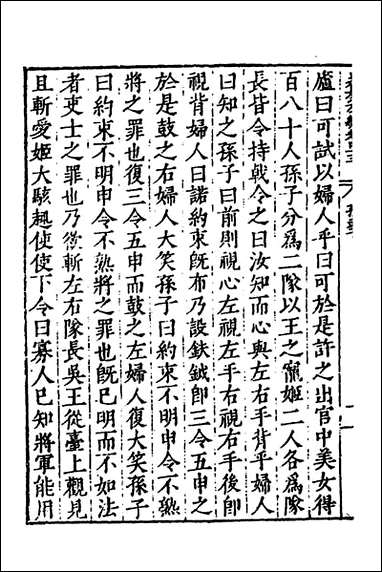 廬曰可試以婦人乎曰可於是許之出宮中美女得
百八十人孫子分爲二隊以王之寵姬二人各爲隊
長皆令持戟令之曰汝知而心與左右手背乎婦人
曰知之孫子曰前則視心左視左手右視右手後即
視背婦人曰諾約束旣布乃設鈇鉞即三令五申之
於是鼓之右婦人大笑孫子曰約束不明申令不熟
將之罪也復三令五申而鼓之左婦人復大笑孫子
曰約束不明申令不熟將之罪也旣已明而不如法
者吏士之罪也乃欲斬左右隊長吳王從臺上觀見
且斬愛姬大駭趣使使下令曰寡人已知將軍能用